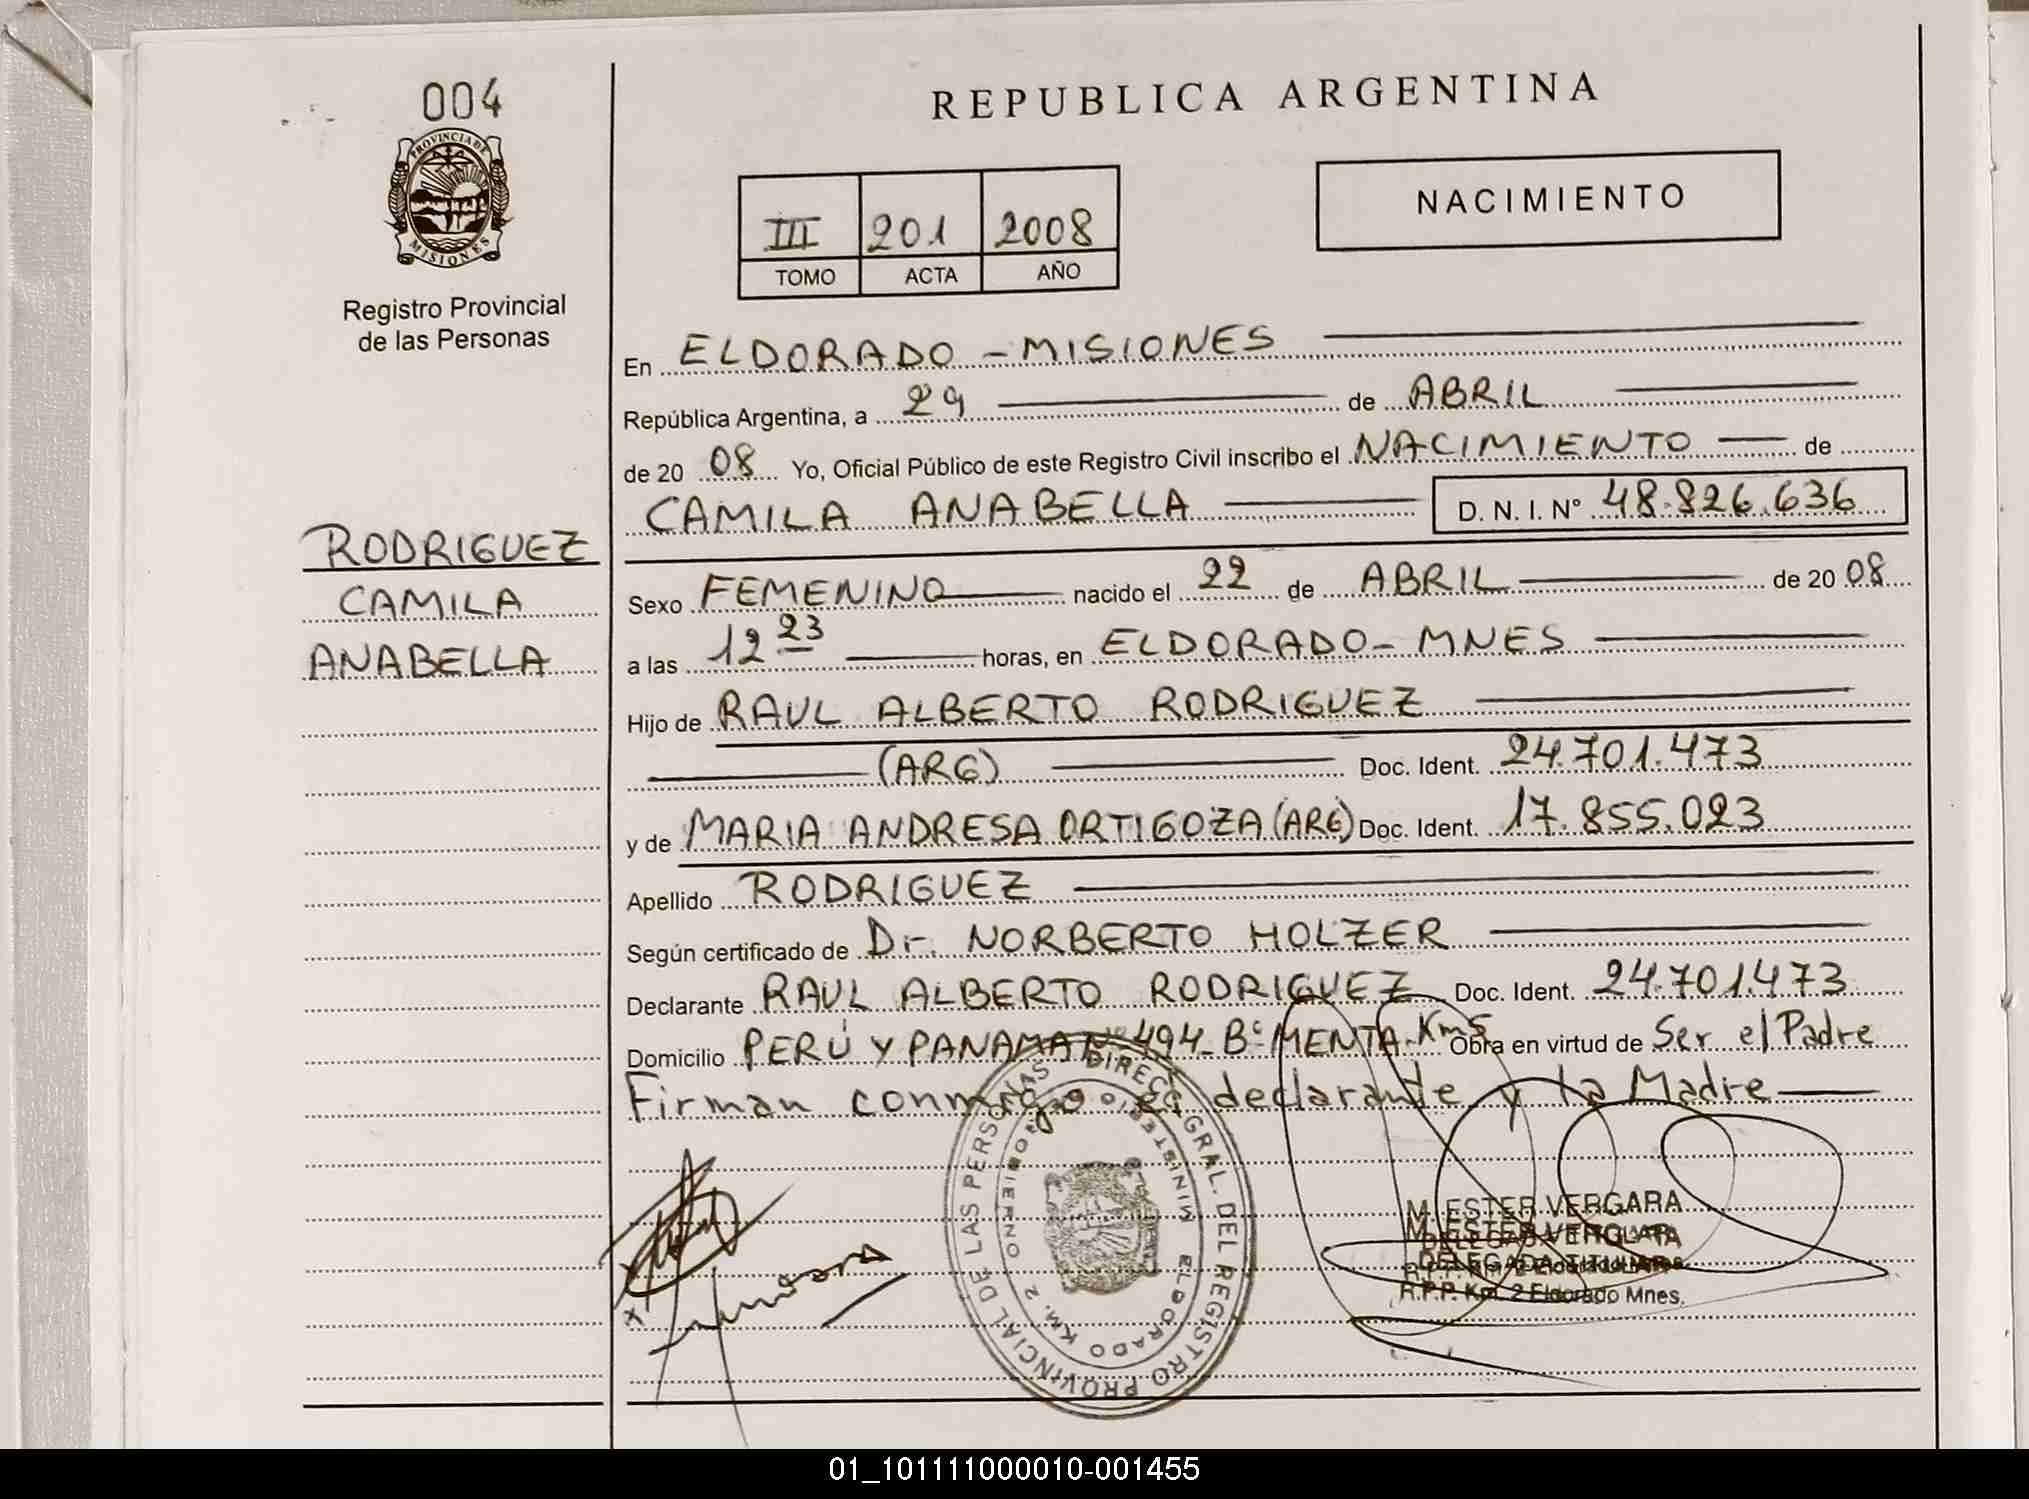 004
PROVINCIA DE
MISIONES
Registro Provincial
de las Personas
RODRIGUEZ
CAMILA
ANABELLA
REPUBLICA ARGENTINA
III 201 2008
TOMO ACTA AÑO
NACIMIENTO
En ELDORADO - MISIONES
República Argentina, a 29 de ABRIL
de 20 08 Yo, Oficial Público de este Registro Civil inscribo el NACIMIENTO de
CAMILA ANABELLA D. N. I. Nº 48.826.636
Sexo FEMENINO nacido el 22 de ABRIL de 20 08
a las 12 23 horas, en ELDORADO - MNES
Hijo de RAUL ALBERTO RODRIGUEZ
(ARG) Doc. Ident. 24.701.473
y de MARIA ANDRESA ORTIGOZA (ARG) Doc. Ident. 17.855.023
Apellido RODRIGUEZ
Según certificado de Dr. NORBERTO HOLZER
Declarante RAUL ALBERTO RODRIGUEZ Doc. Ident. 24.701.473
Domicilio PERÚ Y PANAMA Nº 494 - Bº MENTA - Km5 Obra en virtud de Ser el Padre
Firman conmigo el declarante y la Madre
DIREC. GRAL. DEL REGISTRO PROVINCIAL DE LAS PERSONAS
MINISTERIO GOBIERNO
ELDORADO KM. 2
M. ESTER VERGARA
DELEGADA TITULAR
R.P.P. Km. 2 Eldorado Mnes.
01_101111000010-001455